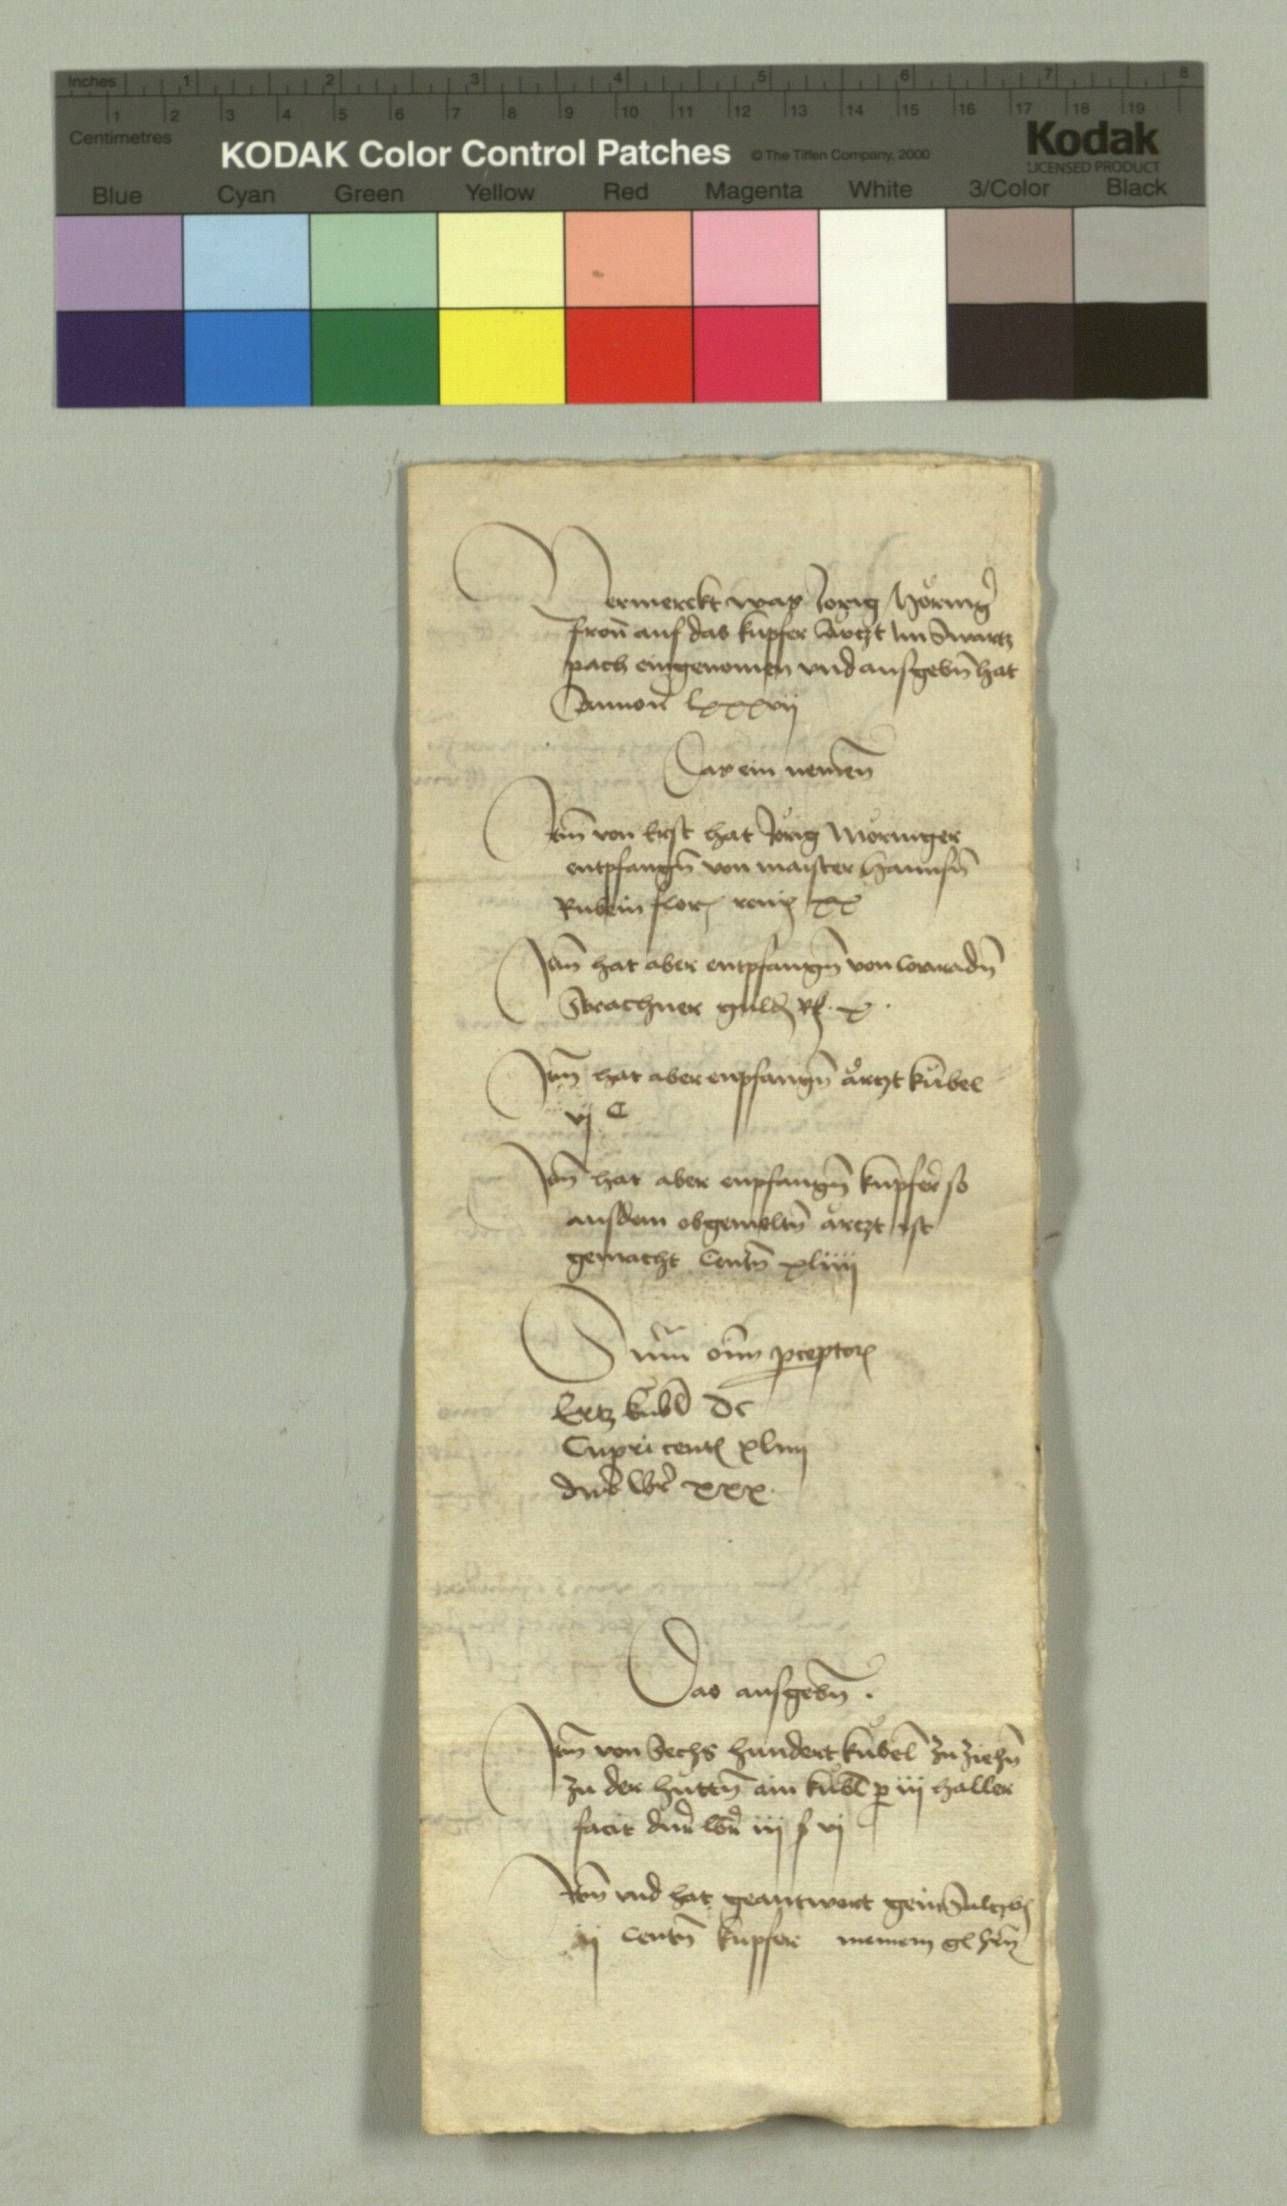 Inches 1 2 3 4 5 6 7 8
1 2 3 4 5 6 7 8 9 10 11 12 13 14 15 16 17 18 19
Centimetres
KODAK Color Control Patches © The Tiffen Company, 2000 Kodak
LICENSED PRODUCT
Blue Cyan Green Yellow Red Magenta White 3/Color Black
Vermerckt was Jorig Möring
fron auf das kupfer Ärtzt im Swartz
pach eingenomen vnd ausgebn hat
Anno lxxxvij
Das ein nemen
Itm von Erst hat Jörig Möringer
entpfangn von maister Hannsn
Rubein flor reinß xx
Itm hat aber entpfangn von Conradn
Strachner guld Rß x
Itm hat aber enpfangn ärtzt kübel
vj C
Itm hat aber enpfangn kupfer so
aus dem obgemeltn ärtzt ist
gemacht Centn xliiij
Summ oim pceptor
Ertz kubl dc
Cupri cent xliiij
xxx
Das ausgebn
Itm von Sechs hundert kübel zu ziehn
zu der huttn ain kubl p iij haller
facit iij ß vj
Itm vnd hat geantwort gein
ij Centn kupfer meinem gl hern